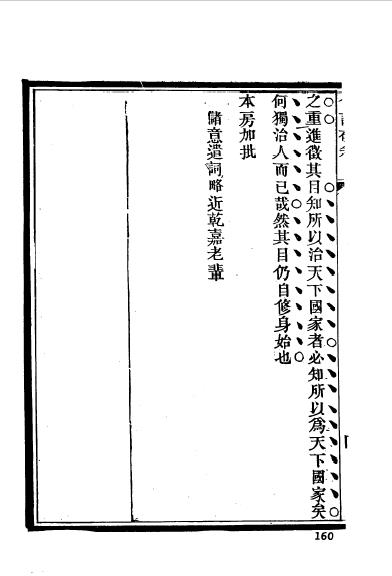 之重進徵其目知所以治天下國家者必知所以爲天下國家矣
何獨治人而已哉然其目仍自修身始也
本房加批
儲意遣詞略近乾嘉老輩
160